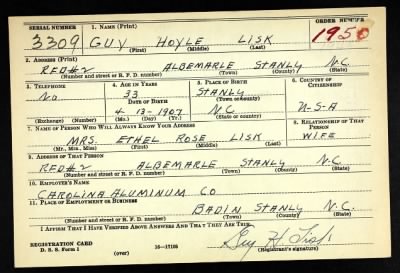 SERIAL NUMBER 1. NAME (Print) ORDER NUMBER
3309 GUY HOYLE LISK 1950
(First) (Middle) (Last)
2. ADDRESS (Print)
RFD#2 ALBEMARLE STANLY N.C.
(Number and street or R. F. D. number) (Town) (County) (State)
3. TELEPHONE 4. AGE IN YEARS 5. PLACE OF BIRTH 6. COUNTRY OF CITIZENSHIP
NO 33 STANLY
DATE OF BIRTH (Town or county)
4-13-1907 N.C. U-S-A
(Exchange) (Number) (Mo.) (Day) (Yr.) (State or country)
7. NAME OF PERSON WHO WILL ALWAYS KNOW YOUR ADDRESS 8. RELATIONSHIP OF THAT PERSON
MRS. ETHEL ROSE LISK WIFE
(Mr., Mrs., Miss) (First) (Middle) (Last)
9. ADDRESS OF THAT PERSON
RFD#2 ALBEMARLE STANLY N.C.
(Number and street or R. F. D. number) (Town) (County) (State)
10. EMPLOYER'S NAME
CAROLINA ALUMINUM CO
11. PLACE OF EMPLOYMENT OR BUSINESS
BADIN STANLY N.C.
(Number and street or R. F. D. number) (Town) (County) (State)
I AFFIRM THAT I HAVE VERIFIED ABOVE ANSWERS AND THAT THEY ARE TRUE.
REGISTRATION CARD
D. S. S. Form 1 (over) 16—17105 Guy H. Lisk
(Registrant's signature)